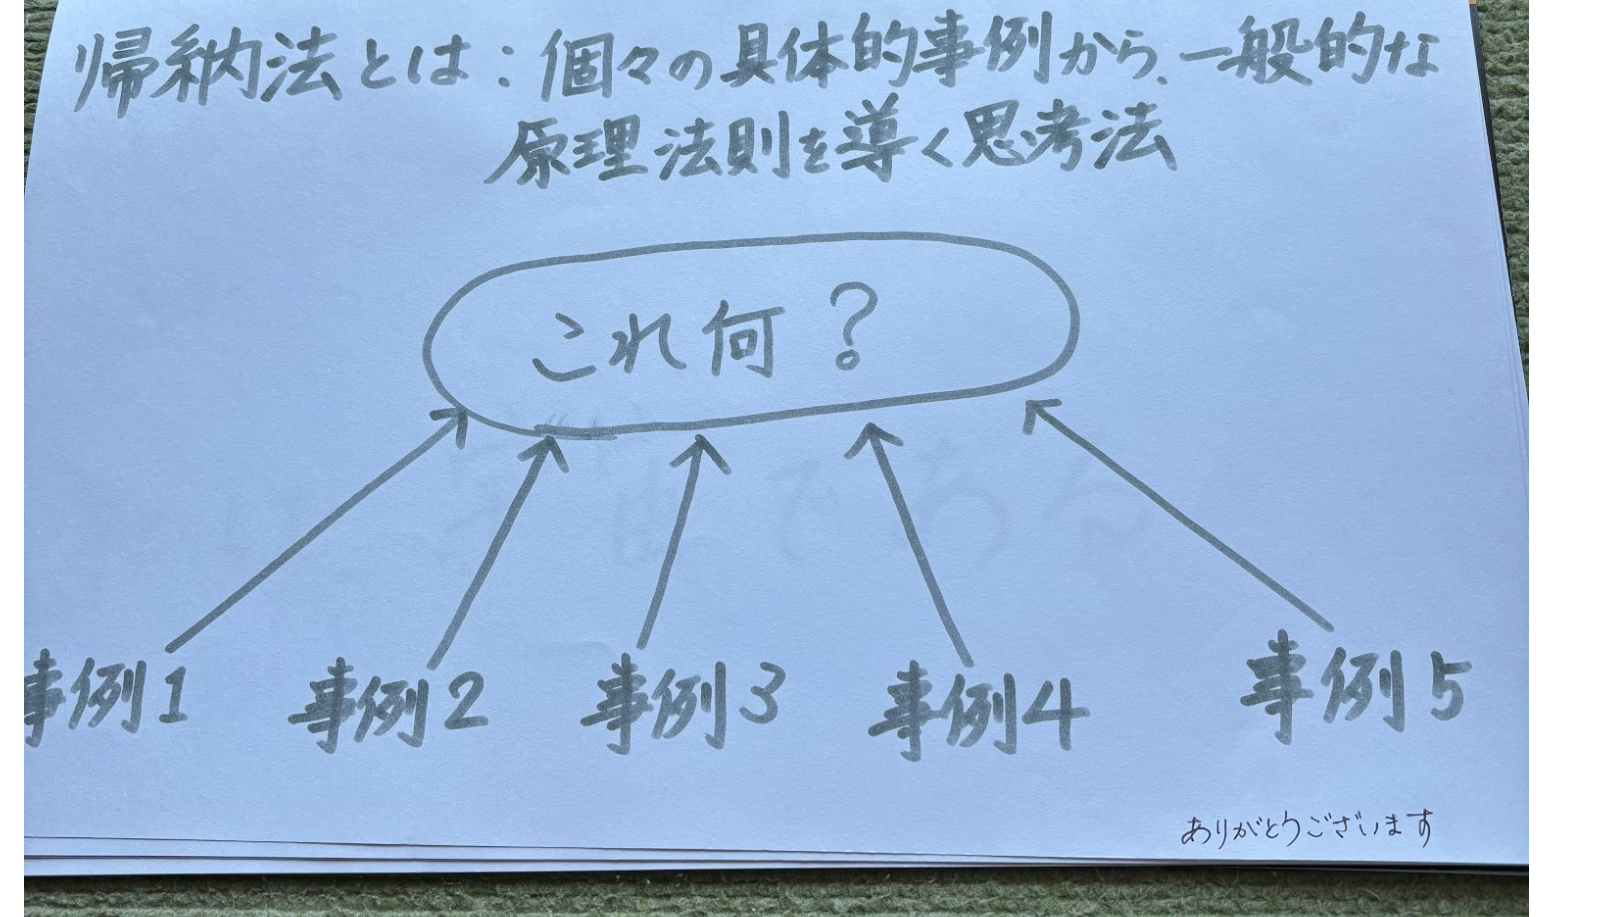 帰納法とは:個々の具体的事例から、一般的な
原理法則を導く思考法
これ何?
事例1
事例2
事例3
事例4
事例5
ありがとうございます